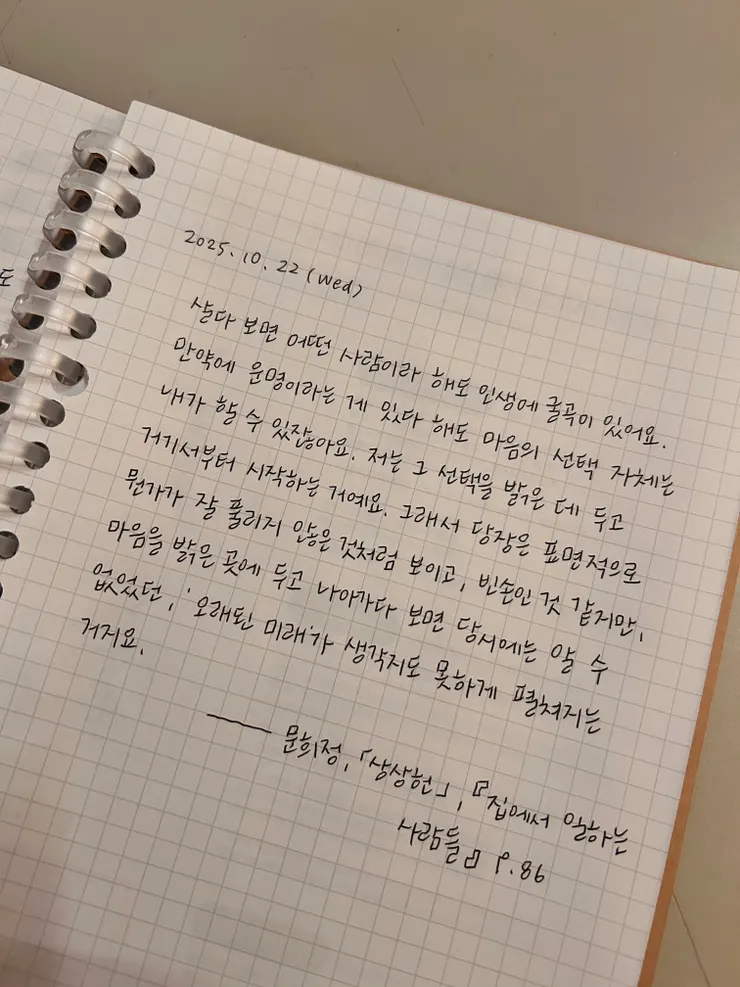 도
2025. 10. 22 (Wed)
살다 보면 어떤 사람이라 해도 인생에 굴곡이 있어요.
만약에 운명이라는 게 있다 해도 마음의 선택 자체는
내가 할 수 있잖아요. 저는 그 선택을 밝은 데 두고
거기서부터 시작하는 거예요. 그래서 당장은 표면적으로
뭔가가 잘 풀리지 않은 것처럼 보이고, 빈손인 것 같지만,
마음을 밝은 곳에 두고 나아가다 보면 당시에는 알 수
없었던, '오래된 미래'가 생각지도 못하게 펼쳐지는
거지요.
—— 문희정, 「생상헌」, 『집에서 일하는
사람들』 p.86